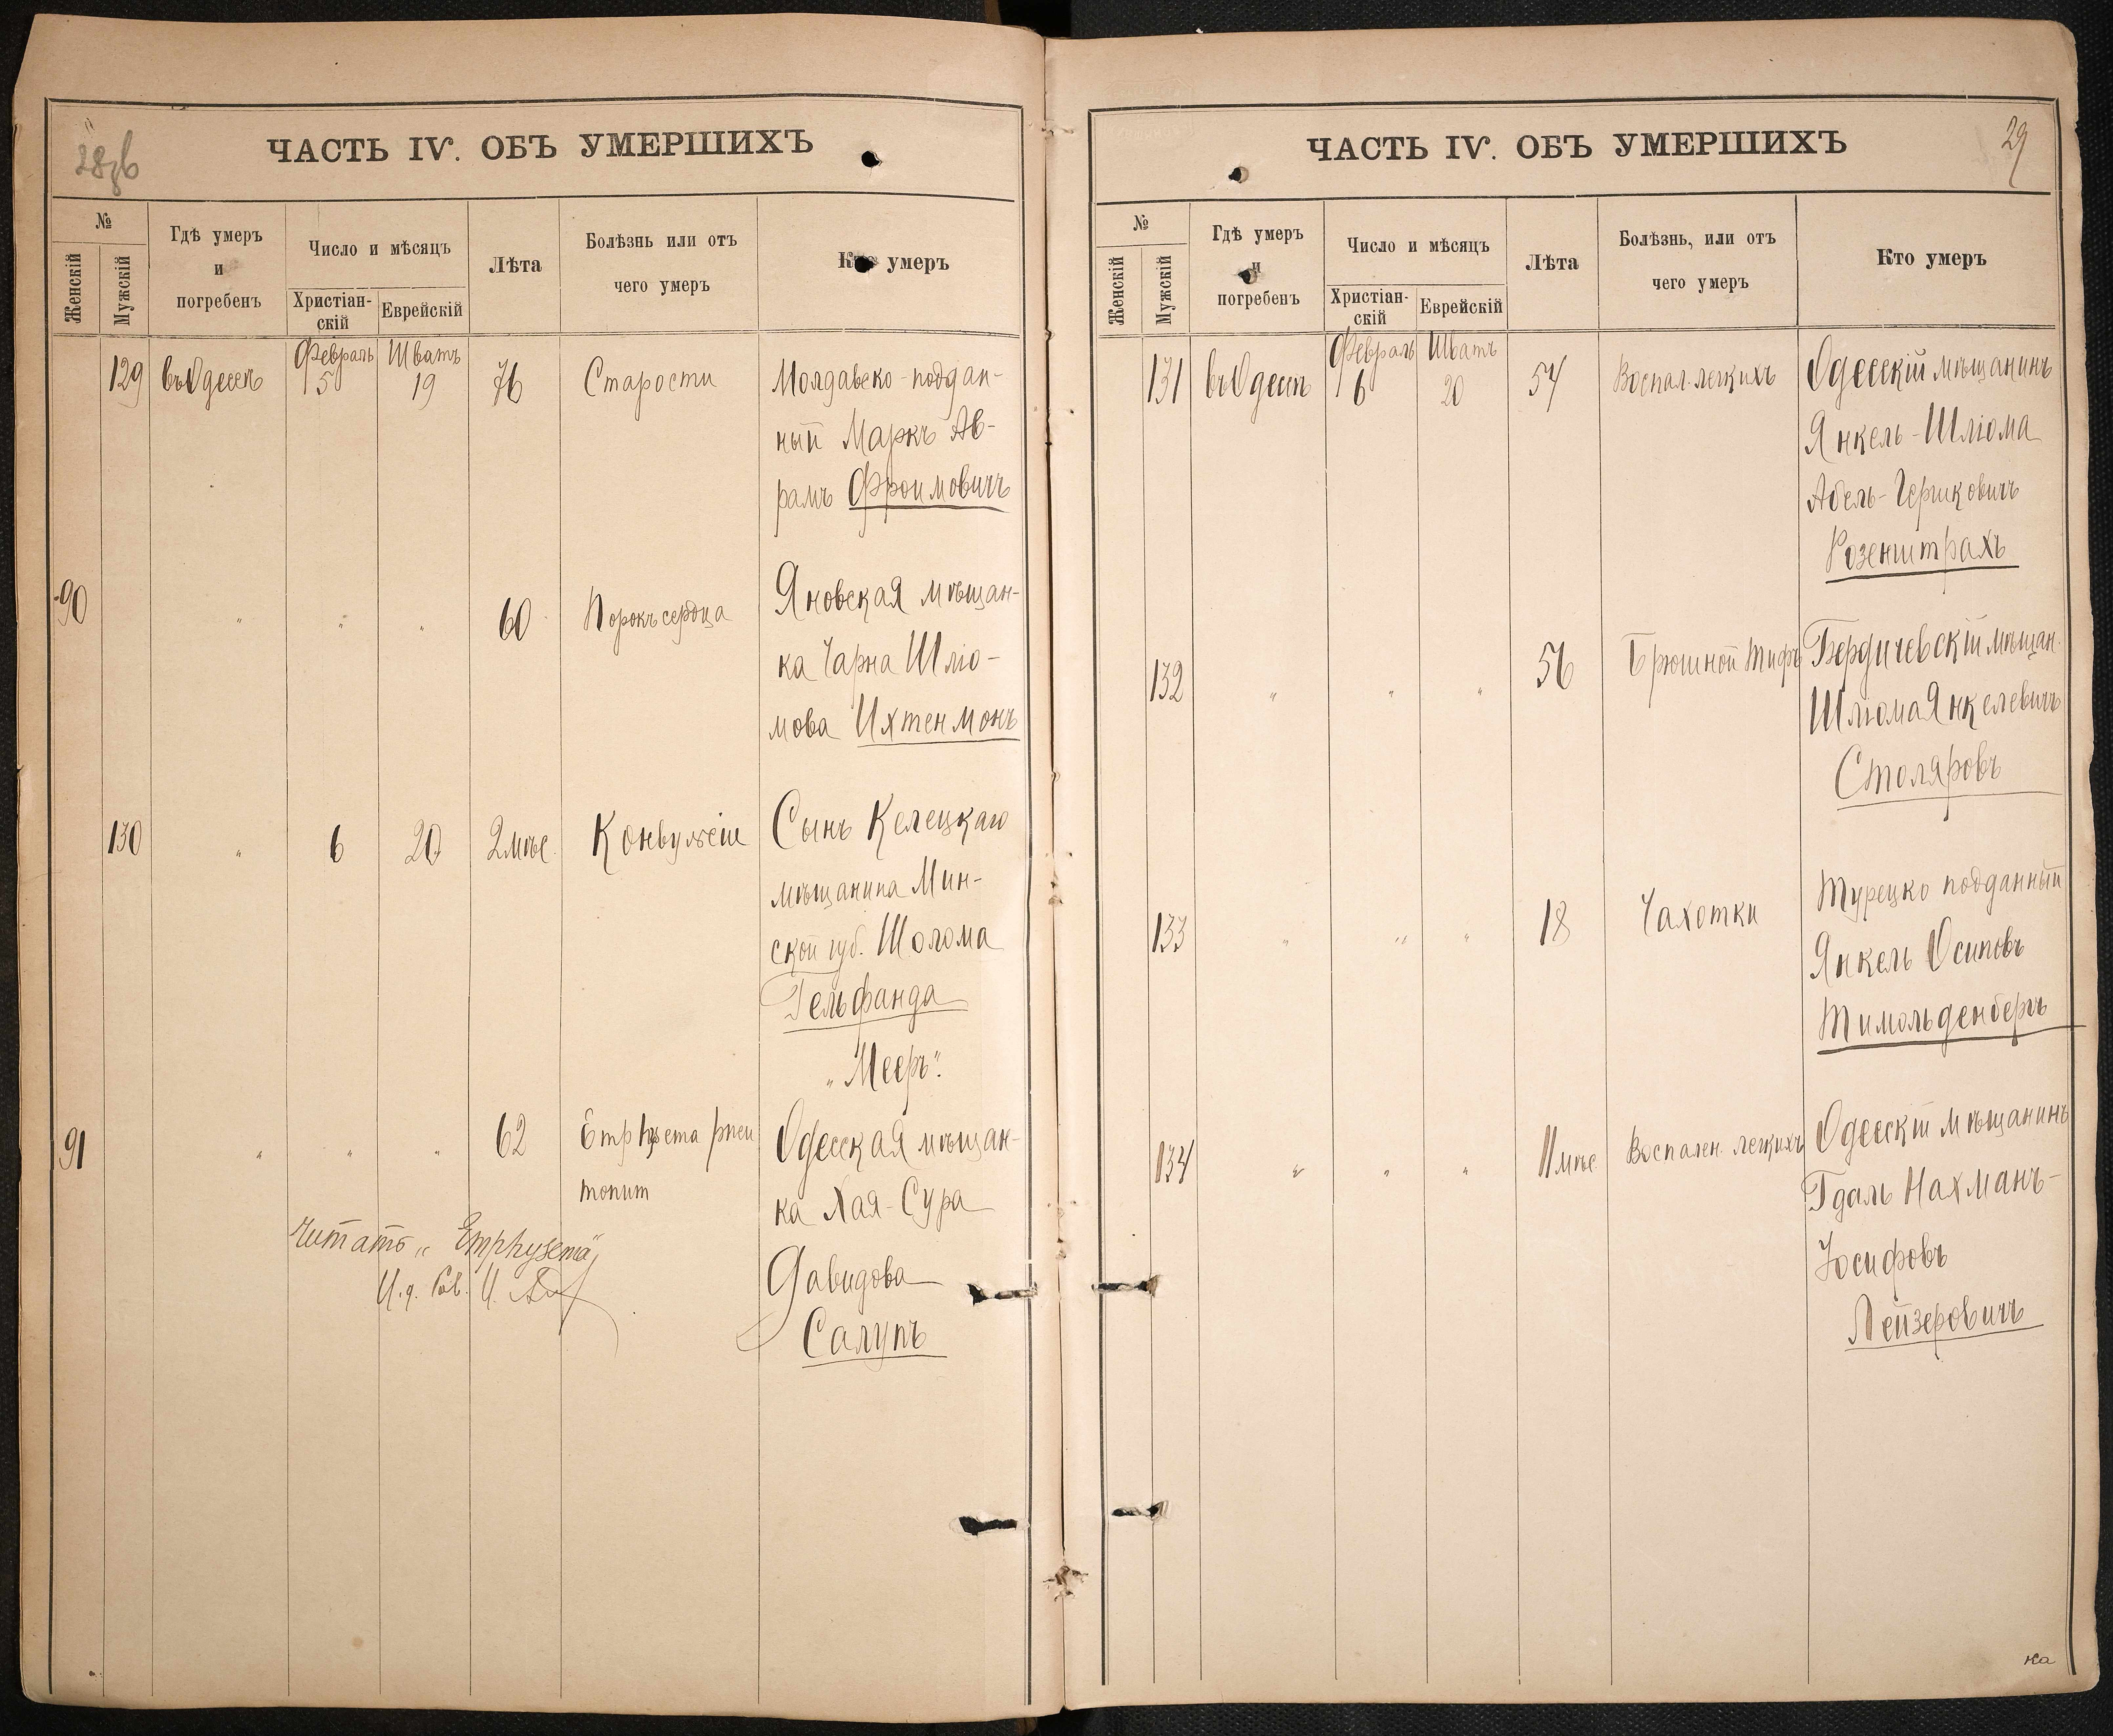 28об
ЧАСТЬ IV. ОБЪ УМЕРШИХЪ
№
Женскій
Мужскій
Гдѣ умеръ
и
погребенъ
Число и мѣсяцъ
Христіан-
скій
Еврейскій
Лѣта
Болѣзнь или отъ
чего умеръ
Кто умеръ
129 въ Одессѣ Февраль 5 Шватъ 19 76 Старости Молдавско-поддан-
ный Маркъ Ав-
рамъ Фроимовичъ
90 " " " 60 Порокъ сердца Яновская мѣщан-
ка Чарна Шлю-
мова Ихтенмонъ
130 " 6 20 2 мѣс. Конвульсіи Сынъ Келецкаго
мѣщанина Мин-
ской губ. Шолома
Гельфанда
„Мееръ".
91 " " " 62 Одесская мѣщан-
ка Хая-Сура
Давидова
Салупъ
Читать „Emphysema"
И. д. Рав. И.
29
ЧАСТЬ IV. ОБЪ УМЕРШИХЪ
№
Женскій
Мужскій
Гдѣ умеръ
и
погребенъ
Число и мѣсяцъ
Христіан-
скій
Еврейскій
Лѣта
Болѣзнь, или отъ
чего умеръ
Кто умеръ
131 въ Одессѣ Февраль 6 Шватъ 20 54 Воспал. легкихъ Одесскій мѣщанинъ
Янкель-Шліома
Абель-Гершковичъ
Розенштрахъ
132 " " " 56 Брюшной тифъ Бердичевскій мѣщан.
Шлюма Янкелевичъ
Столяровъ
133 " " " 18 Чахотки Турецко подданный
Янкель Осиповъ
Тимольденбергъ
134 " " " 11 мѣс. Воспален. легкихъ Одесскій мѣщанинъ
Гдаль Нахманъ-
Іосифовъ
Лейзеровичъ
на